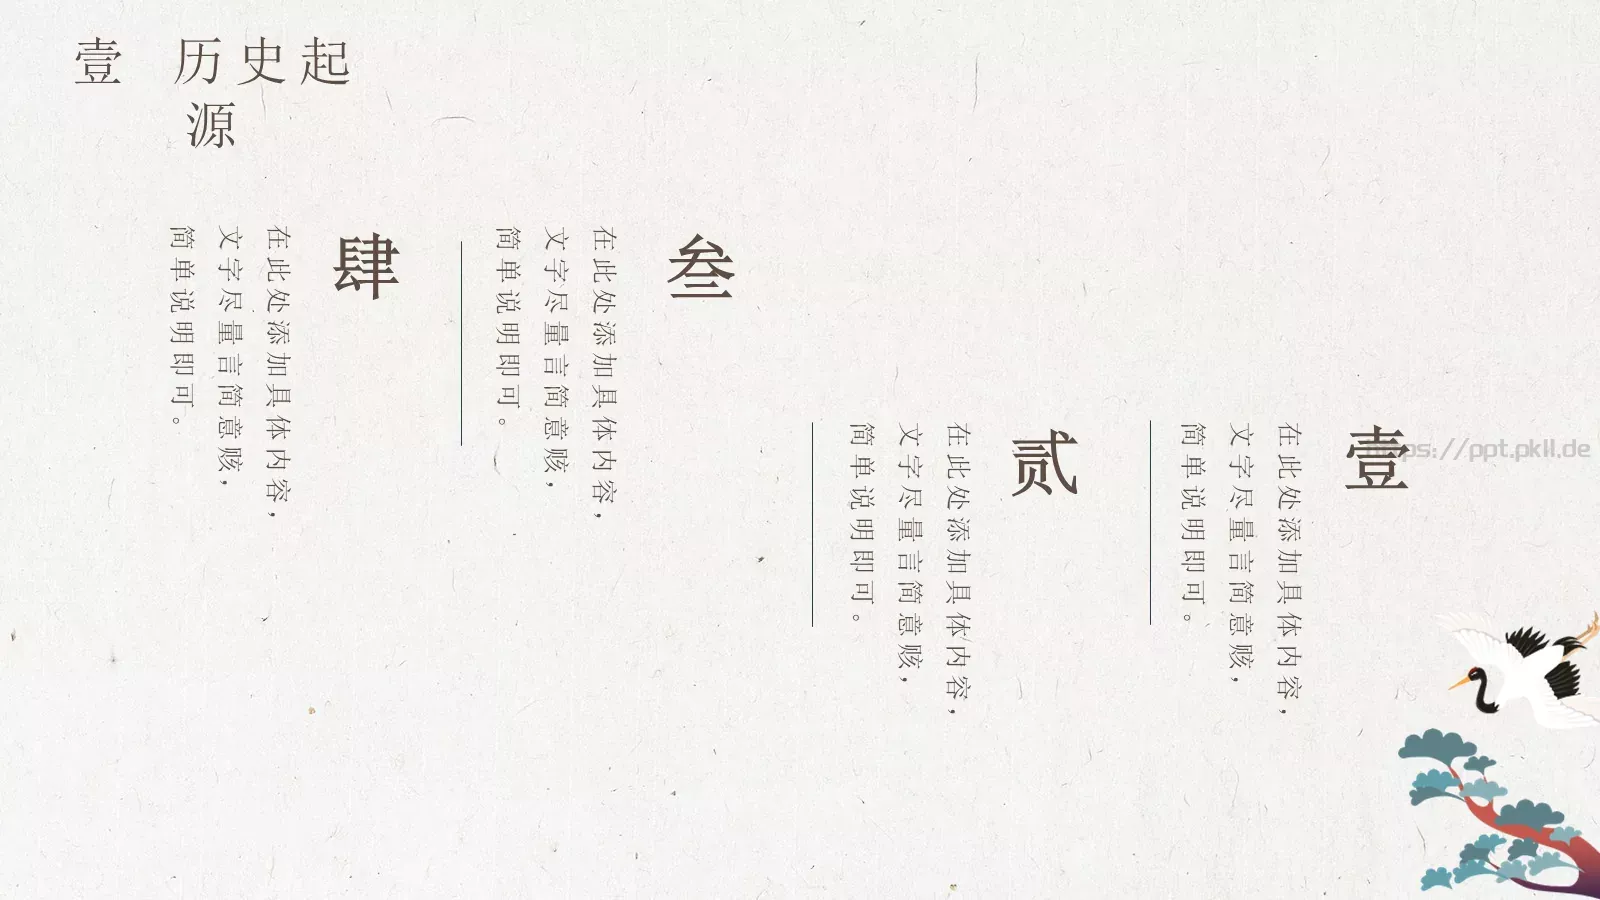 壹 历史起
源
壹
在此处添加具体内容，
文字尽量言简意赅，
简单说明即可。
贰
在此处添加具体内容，
文字尽量言简意赅，
简单说明即可。
叁
在此处添加具体内容，
文字尽量言简意赅，
简单说明即可。
肆
在此处添加具体内容，
文字尽量言简意赅，
简单说明即可。
https://ppt.pkll.de